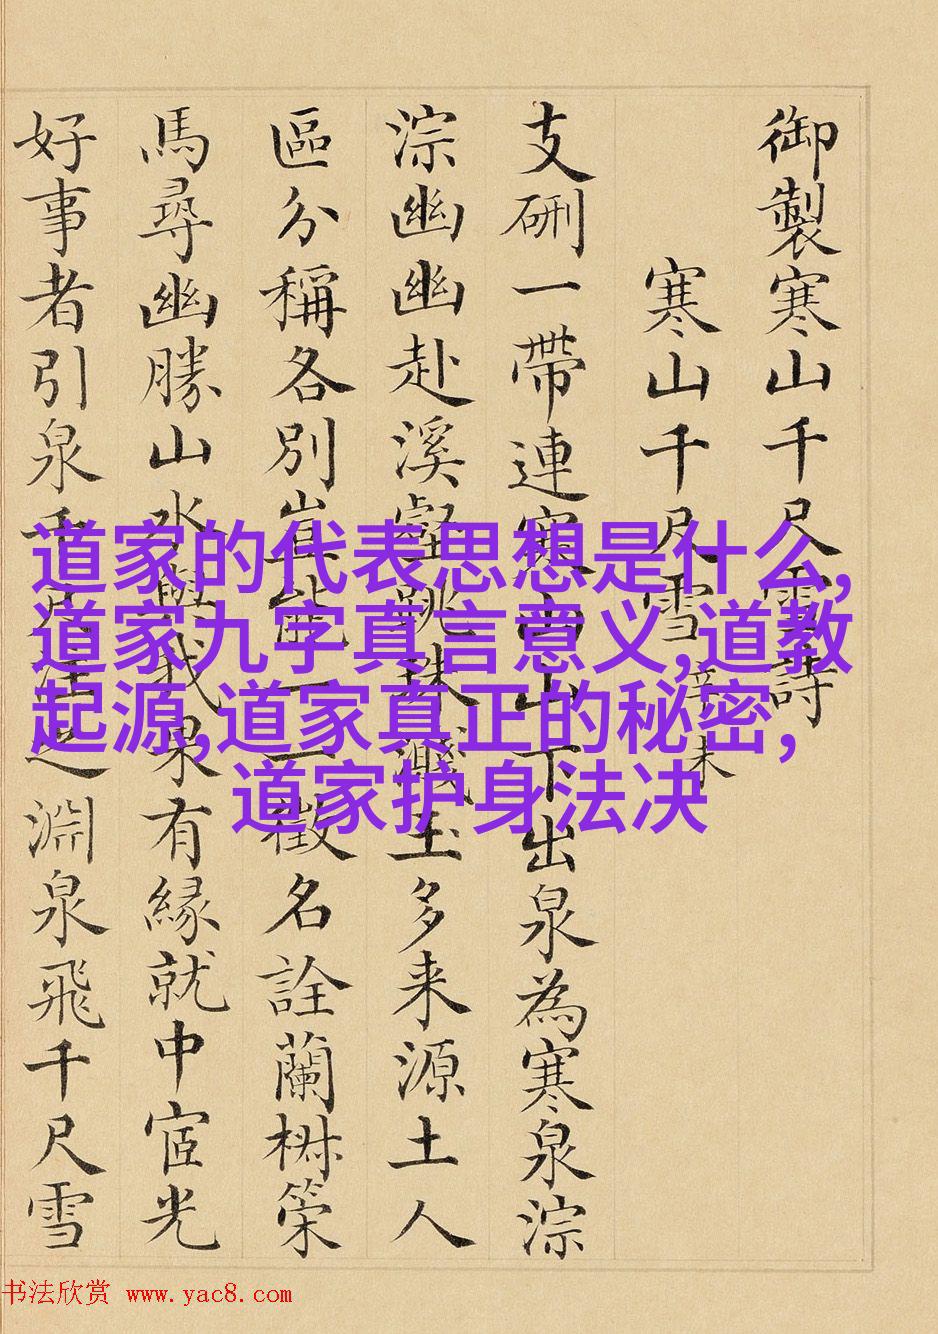 御製寒山千尺雪詩
寒山千尺雪 辛未
支硎一帶連寒山山下出泉為寒泉淙
淙幽幽赴溪壑跳珠濺玉多来源土人
區分稱各別豈能一一徵名詮蘭椒策
馬尋幽勝山水與我果有緣就中宧光
好事者引泉千尺注之淵泉飛千尺雪
道家的代表思想是什么,
道家九字真言意义,道教
起源,道家真正的秘密,
道家护身法决
书法欣赏 www.yac8.com